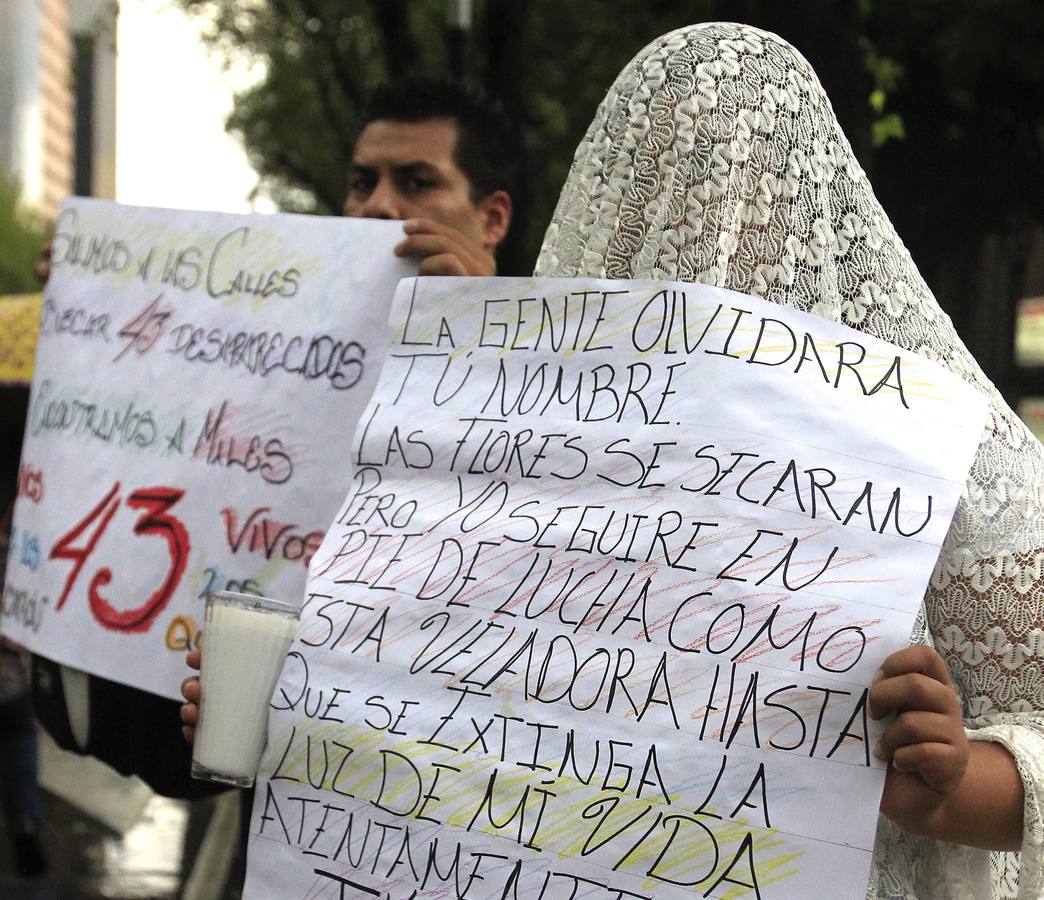 SALIMOS A LAS CALLES
43 DESAPARECIDOS
ENCONTRAMOS A MILES
43 VIVOS
LOS
LA GENTE OLVIDARA
TÚ NOMBRE.
LAS FLORES SE SECARAN
PERO YO SEGUIRE EN
PIE DE LUCHA COMO
ESTA VELADORA HASTA
QUE SE EXTINGA LA
LUZ DE MÍ VIDA
ATENTAMENTE